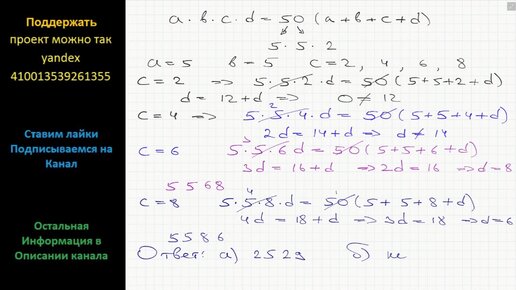 Поддержать
проект можно так
yandex
410013539261355
Ставим лайки
Подписываемся на
Канал
Остальная
Информация в
Описании канала
a · b · c · d = 50 (a + b + c + d)
5 · 5 · 2
a = 5 b = 5 c = 2, 4, 6, 8
c = 2 => 5 · 5 · 2 · d = 50 (5 + 5 + 2 + d)
d = 12 + d => 0 ≠ 12
c = 4 => 5 · 5 · 4 · d = 50 (5 + 5 + 4 + d)
2d = 14 + d => d ≠ 14
c = 6 5 · 5 · 6 d = 50 (5 + 5 + 6 + d)
3d = 16 + d => 2d = 16 => d = 8
5 5 6 8
c = 8 5 · 5 · 8 · d = 50 (5 + 5 + 8 + d)
4d = 18 + d => 3d = 18 => d = 6
5 5 8 6
Ответ: а) 2529 б)